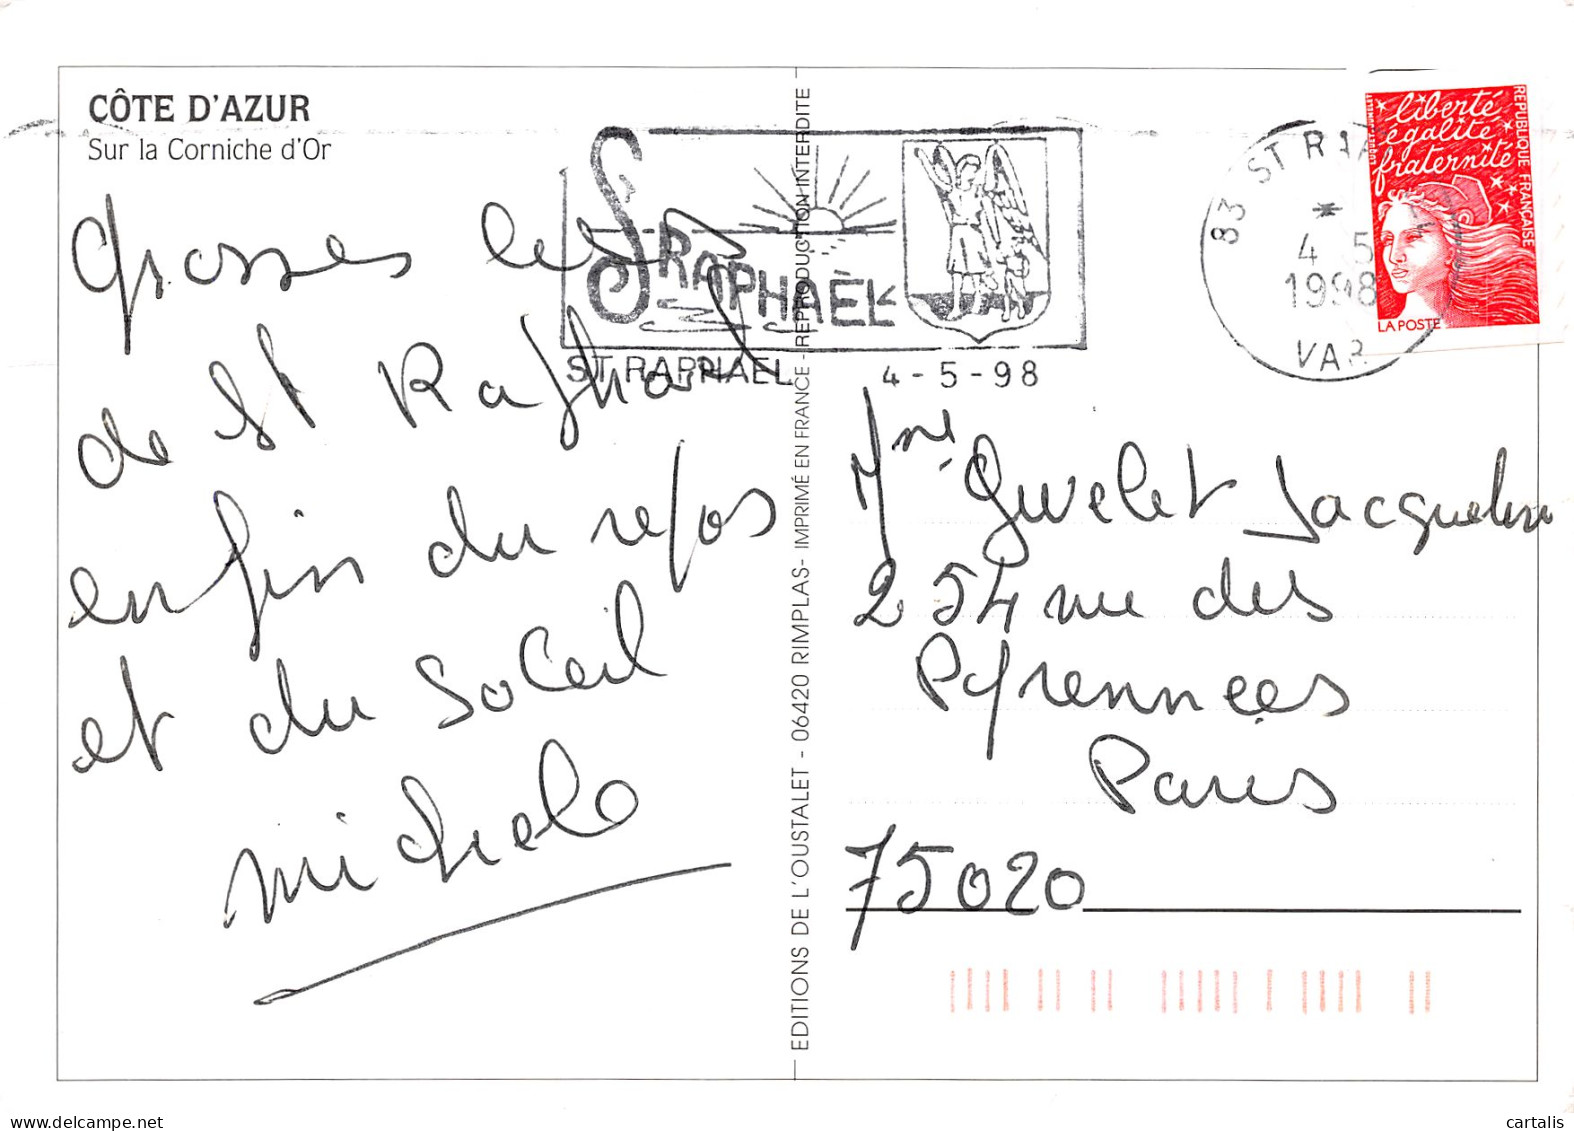 CÔTE D'AZUR
Sur la Corniche d'Or
Grosses
de St Raphael
enfin du repos
et du soleil
michele
ST RAPHAËL
ST RAPHAEL 4-5-98
83 ST RA
*
4 5
1998
VAR
liberté
égalité
fraternité
REPUBLIQUE FRANÇAISE
LA POSTE
EDITIONS DE L'OUSTALET - 06420 RIMPLAS - IMPRIMÉ EN FRANCE - REPRODUCTION INTERDITE
Jacqueline
254 rue des
Pyrennées
Paris
75020
delcampe.net
cartalis